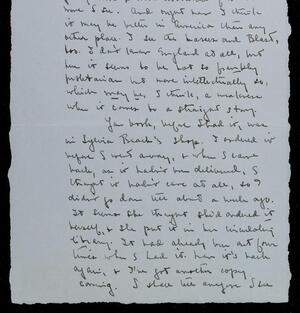 one I see. And right now I think
it may be better in America than any
other place. I see the Masses and Blast,
too. I don't know England at all, but
me it seems to be not so frankly
proletarian but more intellectually so,
which may be, I think, a weakness
when it comes to a straight story.
Your book, before I had it, was
in Sylvia Beach's shop. I ordered it
before I went away, & when I came
back, as it hadn't been delivered, I
thought it hadn't come at all, so I
didn't go down till about a week ago.
It seems she thought she'd ordered it
herself, & she put it in her circulating
library. It had already been out four
times when I had it. Now it's back
again, & I've got another copy
coming. I shall tell anyone I see